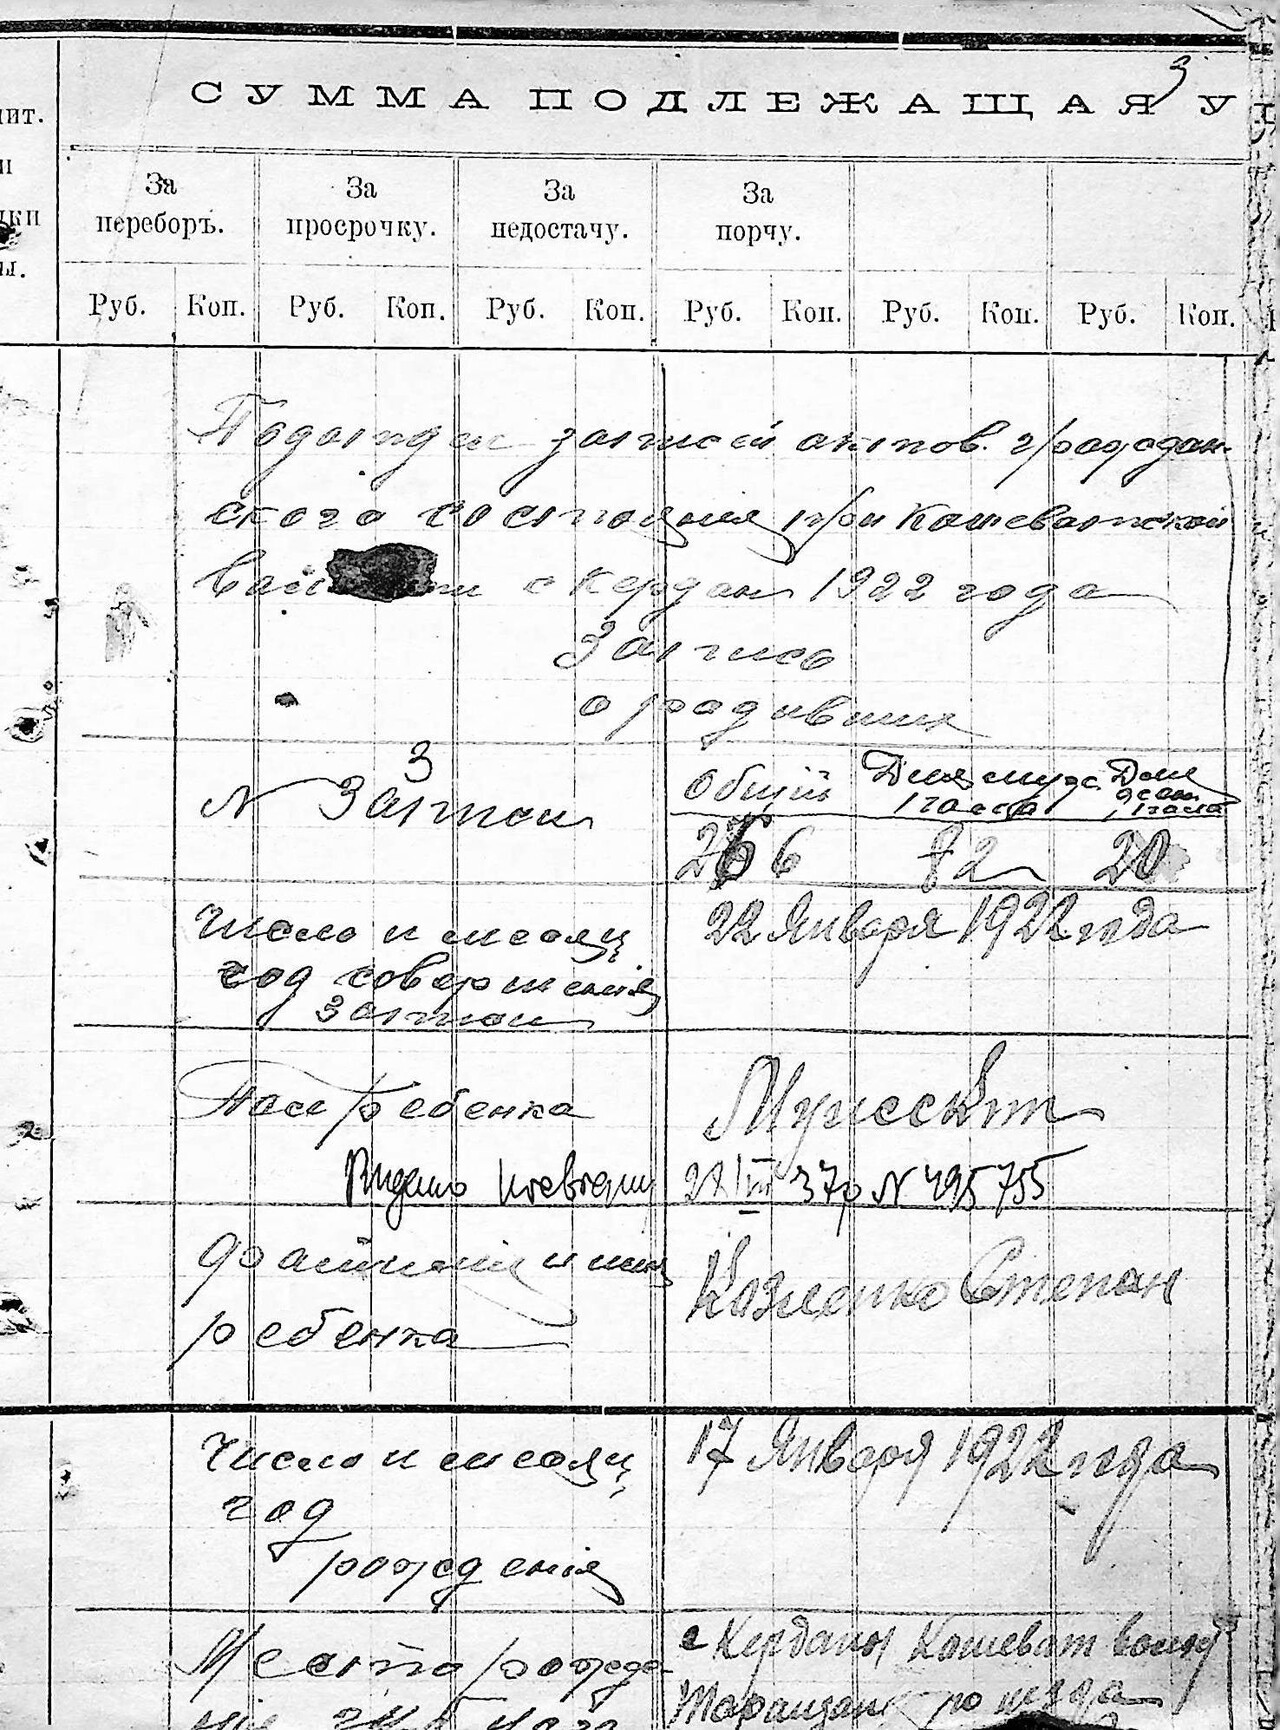 3
СУММА ПОДЛЕЖАЩАЯ У
ит.
и
ки
ы.
За переборъ. За просрочку. За недостачу. За порчу.
Руб. Коп. Руб. Коп. Руб. Коп. Руб. Коп. Руб. Коп. Руб. Коп.
Подотдел записей актов граждан-
ского состояния при Кошеватской
с Кердан 1922 года
Запись
о родивших
3
N Записи
Общий
266 82 20
Число и месяц
год совершения
записи
22 Января 1922 года
Пол ребенка
Мужескїй
Видано N 495755
Фамилия и имя
ребенка
Козленко Степан
Число и месяц
год
рождения
17 Января 1922 года
Место рожде
с Керданы Кошеват волос
Таращан уезда